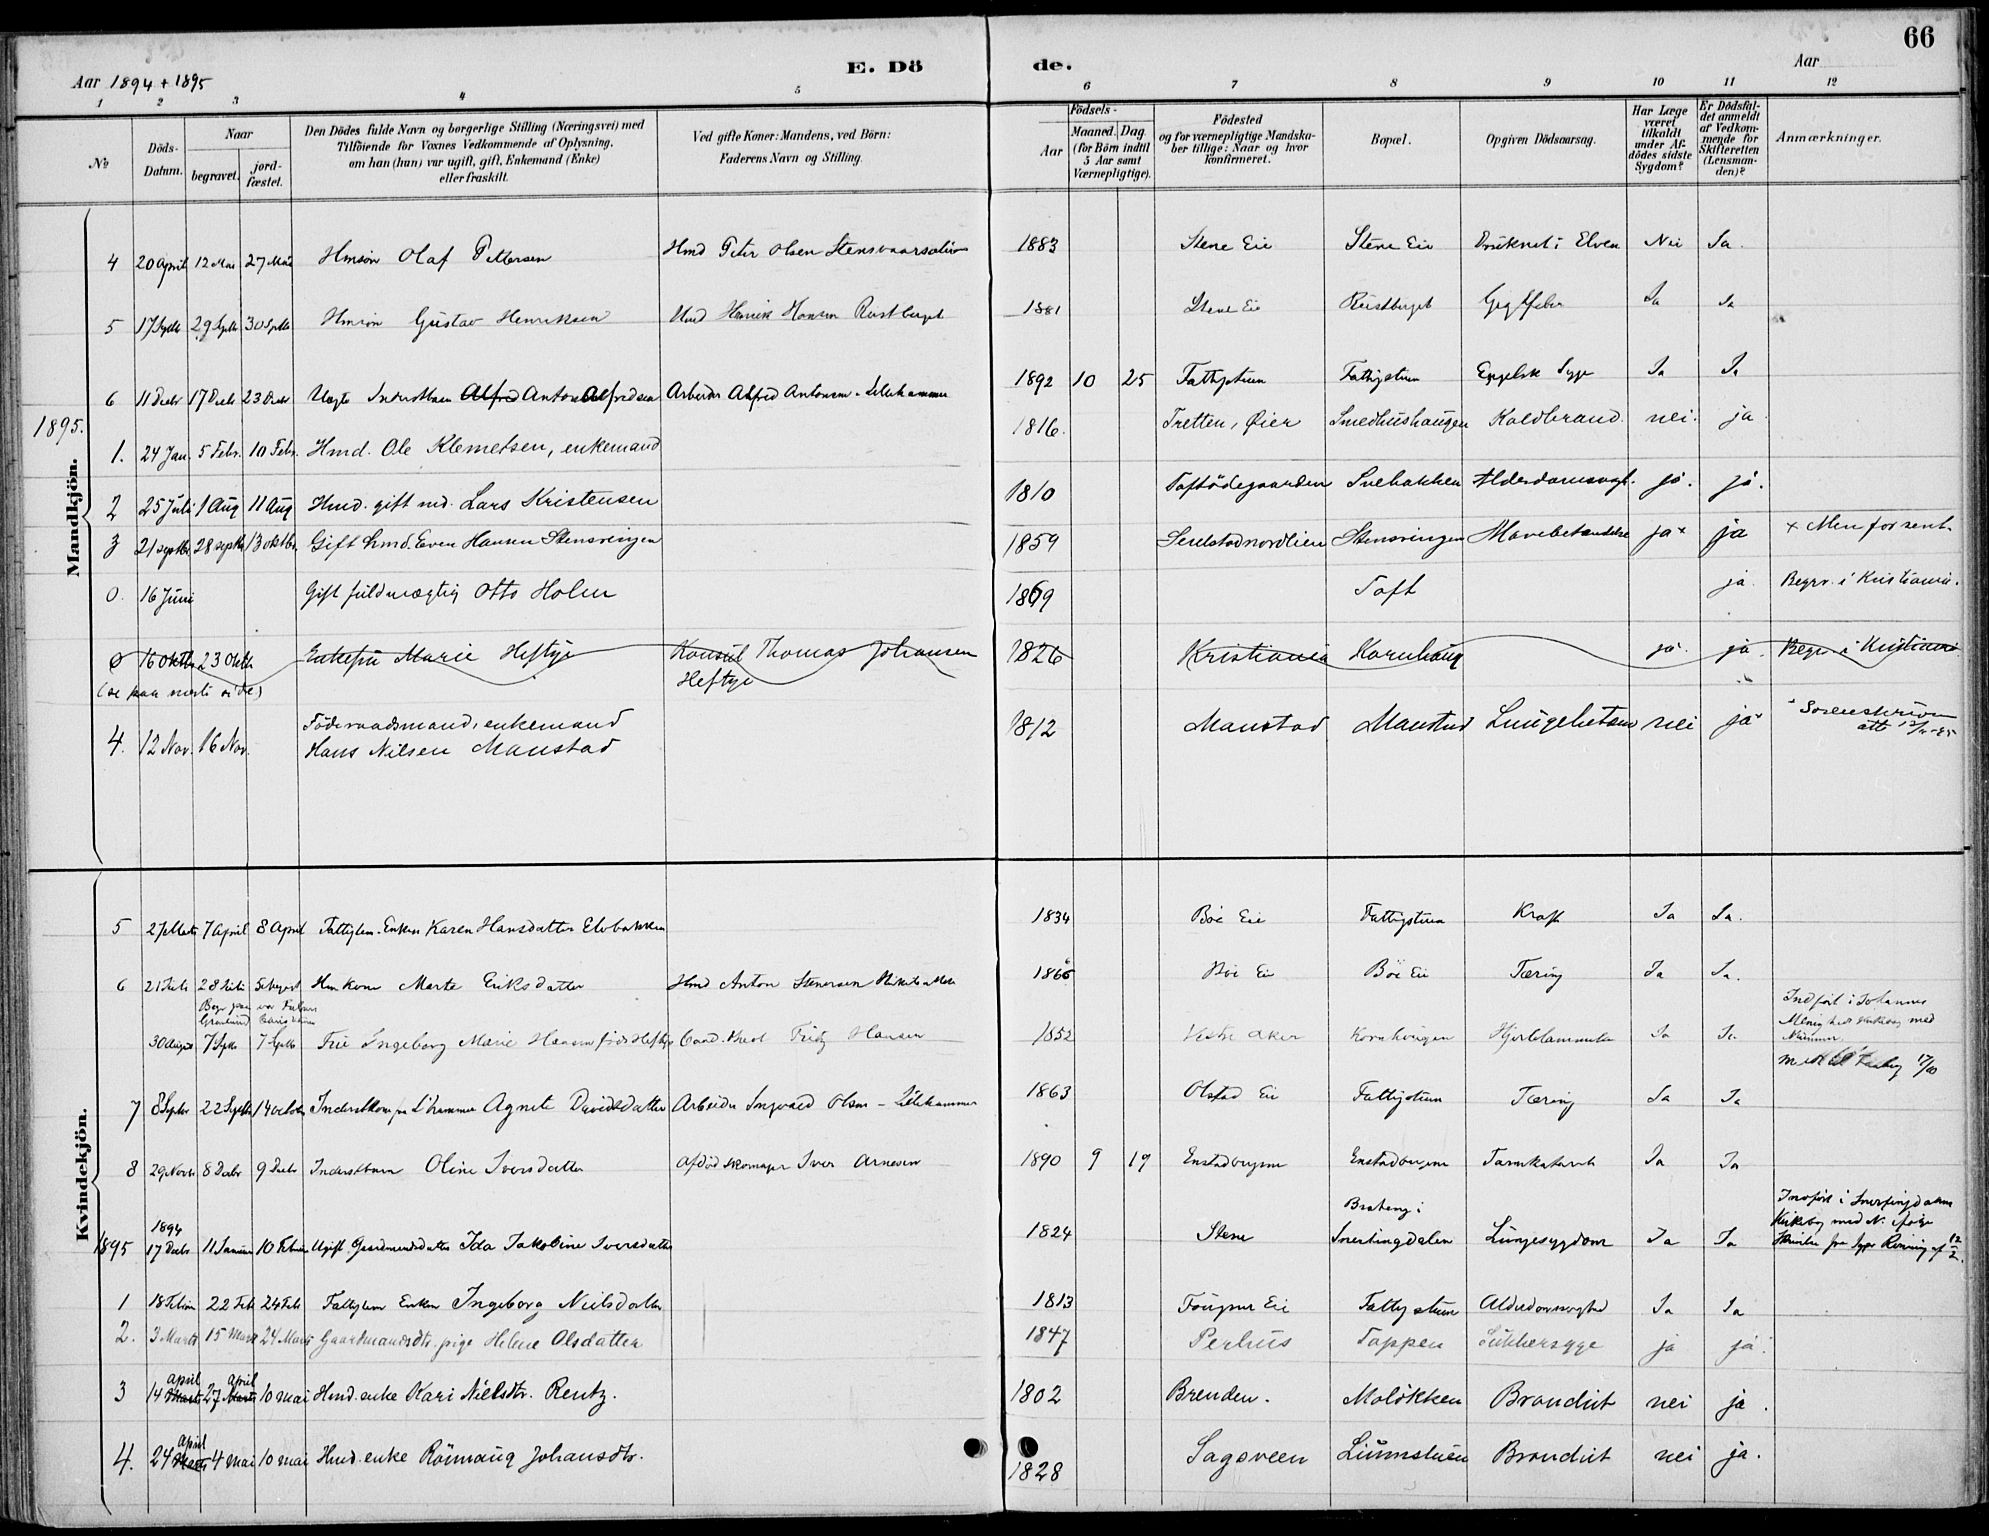 66
Aar 1894 + 1895 E. Dö de. Aar
1 2 3 4 5 6 7 8 9 10 11 12
No Döds-Datum. Naar begravet. jord-fæstet. Den Dödes fulde Navn og borgerlige Stilling (Næringsvei) med Tilföiende for Voxnes Vedkommende af Oplysning, om han (hun) var ugift, gift, Enkemand (Enke) eller fraskilt. Ved gifte Koner: Mandens, ved Börn: Faderens Navn og Stilling. Födsels- Aar Maaned. Dag. (for Börn indtil 5 Aar samt Værnepligtige). Födested og for værnepligtige Mandska-ber tillige: Naar og hvor konfirmeret. Bopæl. Opgiven Dödsaarsag. Har Læge været tilkaldt under Af-dödes sidste Sygdom? Er Dödsfal-det anmeldt af Vedkom-mende for Skifteretten (Lensman-den)? Anmærkninger.
Mandkjön.
4 20 April 12 Mai 27 Mai Hmsön Olaf Pettersen Hmd Peter Olsen 1883 Stene Eie Stene Eie Druknet i Elven Nei Ja.
5 17 Septb 29 Septb 30 Septb Hmsön Gustav Henriksen Hmd Henrik Hansen Rustberget 1881 Stene Eie Rustberget Gigtfeber Ja Ja
6 11 Decbr 17 Decb 23 Decbr Uægte Alfred Anton Alfredsen Arbeider Alfred Antonsen - Lillehammer 1892 10 25 Fattigstuen Fattigstuen Engelsk Syge Ja Ja
1895.
1. 24 Jan. 5 Febr. 10 Febr. Hmd. Ole Klemetsen, enkemand 1816. Tretten, Öier Smedhushaugen Koldbrand. nei. ja
2 25 Juli 1 Aug 11 Aug Hmd. gift md. Lars Kristensen 1810 Toftödegaarden Svebakken Alderdomssvagh. ja. ja.
3 21 septbr 28 septbr 13 oktbr. Gift hmd. Even Hansen Stensvingen 1859 Stensvingen Mavebetændelse ja x ja x Men for sent.
0. 16 Juni Gift fuldmægtig Otto Holm 1869 Toft ja. Begrv. i Kristiania.
0 16 Oktbr 23 Oktb Enkefru Marie Heftye Konsul Thomas Johansen Heftye 1826 Kristiania Kornhaug ja. ja. Begr. i Kristiania
(se paa næste side)
4. 12 Nov. 16 Nov. Föderaadsmand, enkemand
Hans Nilsen Maustad 1812 Maustad Maustad Lungebetænd nei ja
Kvindekjön.
5 27 Marts 7 April 8 April Fattiglem. Enken Karen Hansdatter Elvbakken 1834 Böe Eie Fattigstuen Kræft Ja Ja.
6 21 Juli 28 Juli Hm kone Marte Eriksdatter Hmd Anton Stenersen 1866 Böe Eie Böe Eie Tæring Ja Ja.
30 August 7 Septb 7 Septb Frue Ingeborg Marie Hansen född Heftye Cand. theol Fritz Hansen 1852 Vestre Aker Kornhaugen Hjertelammelse Ja Ja Indfört i Johannes Menigheds Kirkebog med Nummer.
7 8 Septbr 22 Septb 14 octob Agnete Davidsdatter Arbeider Ingvald Olsen - Lillehammer 1863 Olstad Eie Fattigstuen Tæring Ja Ja
8 29 Novb 8 Decbr 9 Decb Inderstbarn Oline Iversdatter Afdöd Skomager Iver Arnesen 1890 9 19 Tarmkatarrh Ja Ja
1895 1894 17 Decbr 11 Januar 10 Februar Ugift Gaardmandsdatter Ida Jakobine Iversdatter 1824 Stene i Snertingdalen Lungesygdom Ja Ja Indfört i Snertingdalens Kirkebog med N. ifölge
1 18 Februar 22 Feb 24 Feb Fattiglem Enken Ingeborg Nielsdatter 1813 Eie Fattigstuen Alderdomssvaghed Ja Ja
2. 3 Marts 15 Marts 24 Marts Gaardmandsdtr. pige Helene Olsdatter 1847 Perhus Toppen Sukkersyge ja ja.
3 14 April Marts 27 April Marts 10 mai Hmd. enke Kari Nielsdtr. Rentz. 1802 Brenden. Molökken Brandiit nei ja.
4. 24 April Marts 4 mai 10 mai Hmd. enke Römaug Johansdtr. 1828 Sagsveen Brandiit nei ja.